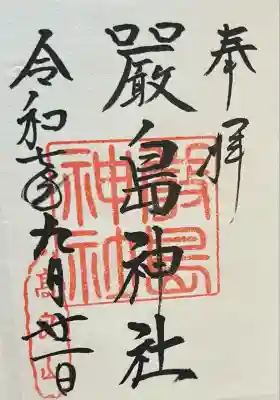 奉拝
嚴島神社
令和七年九月廿一日
嚴島神社